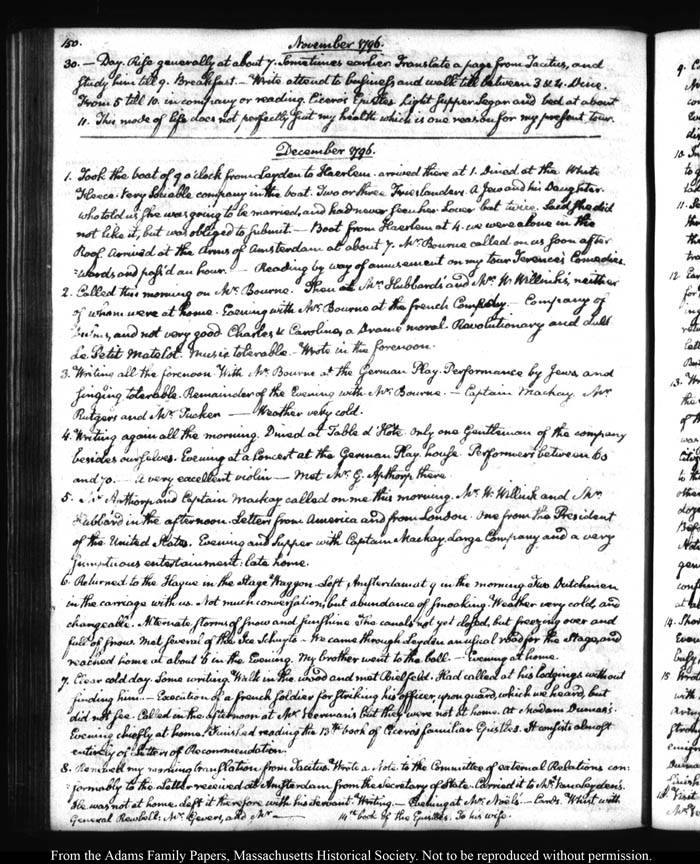 150.
November 1796.
30. — Day. Rise generally at about 7. Sometimes earlier. Translate a page from Tacitus, and
study him till 9. Breakfast. — Write attend to business and walk till between 3 & 4. Dine.
From 5 till 10. in company or reading. Cicero's Epistles. Light supper. Segar and bed at about
11. This mode of life does not perfectly suit my health which is one reason for my present tour.
December 1796.
1. Took the boat of 9 o'clock from Leyden to Haerlem. arrived there at 1. Dined at the White
Fleece. Very sociable company in the boat. Two or three Frieslanders. A Jew and his Daughter.
who told us, she was going to be married, and had never seen her Lover but twice. Said she did
not like it, but was obliged to submit. — Boat from Haerlem at 4. we were alone in the
Roof. Arrived at the Arms of Amsterdam at about 7. Mr. Bourne called on us soon after
wards and pass'd an hour. — Reading by way of amusement on my tour Terence's Comedies.
2. Called this morning on Mr. Bourne. Then at Mr. Hubbard's and Mr. W. Willink's, neither
of whom were at home. Evening with Mr. Bourne at the french Comedy. — Company of
and not very good. Charles & Caroline, a Drame moral. Revolutionary and dull.
Le Petit Matelot. Music tolerable. Wrote in the forenoon.
3. Writing all the forenoon. With Mr. Bourne at the German Play. Performance by Jews, and
singing tolerable. Remainder of the Evening with Mr. Bourne. — Captain Mackay. Mr.
Rutgers and Mr. Tucker — Weather very cold.
4. Writing again all the morning. Dined at Table d'Hôte only one Gentleman of the company
besides ourselves. Evening at a Concert at the German Play-house. Performers between 60
and 70. — A very excellent violin — Met Mr. G. Apthorp there.
5. Mr. Apthorp and Captain Mackay called on me this morning. Mr. W. Willink and Mr.
Hubbard in the afternoon. Letters from America and from London. One from the President
of the United States. Evening and supper with Captain Mackay. large Company and a very
sumptuous entertainment: late home.
6. Returned to the Hague in the Stage Waggon. Left Amsterdam at 9 in the morning. Two Dutchmen
in the carriage with us. Not much conversation, but abundance of smoaking. Weather very cold, and
changeable. Alternate storms of snow and sunshine. The canals not yet closed, but freezing over and
full of snow. Met several of the Ice Schuyts — We came through Leyden an usual road for the Stage, and
reached home at about 6 in the Evening. My brother went to the ball. — Evening at home.
7. Clear cold day. Some writing. Walk in the wood and met Bielfeld. Had called at his lodgings without
finding him. — Execution of a french soldier for striking his officer, upon guard, which we heard, but
did not see. Called in the afternoon at Mr. Veerman's but they were not at home. At Madam Dumas's.
Evening chiefly at home. Finished reading the 13th. book of Cicero's familiar Epistles. It consists almost
entirely of Letters of Recommendation.
8. Renewed my morning translation from Tacitus. Wrote a Note to the Committee of external Relations con-
formably to the Letter received at Amsterdam from the Secretary of State. Carried it to Mr. Van Leyden's.
He was not at home. left it therefore with his servant. Writing. — Evening at Mr. Noël's. — Cards. Whist with
General Rewbell: Mr. Gevers, and Mr. — 14th. book of the Epistles. To his wife.
From the Adams Family Papers, Massachusetts Historical Society. Not to be reproduced without permission.